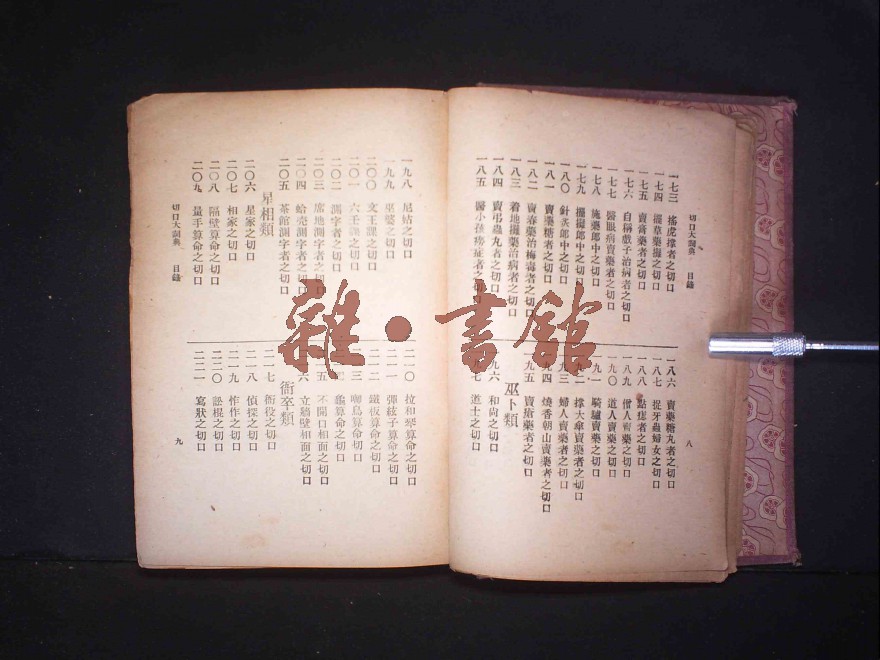 切口大詞典 目錄
八
一七三 搖虎撑者之切口
一七四 擺草藥攤之切口
一七五 賣膏藥者之切口
一七六 自稱戲子治病者之切口
一七七 醫眼病賣藥者之切口
一七八 施藥郎中之切口
一七九 擺攤郎中之切口
一八〇 針灸郎中之切口
一八一 賣藥糖者之切口
一八二 賣春藥治梅毒者之切口
一八三 着地攤藥治病者之切口
一八四 賣弔蟲丸者之切口
一八五 醫小孩癆症者之切口
一八六 賣藥糖丸者之切口
一八七 捉牙蟲婦女之切口
一八八 點痣者之切口
一八九 僧人賣藥之切口
一九〇 道人賣藥之切口
九一 騎驢賣藥之切口
九二 撑大傘賣藥者之切口
九三 婦人賣藥者之切口
九四 燒香朝山賣藥者之切口
一九五 賣瘡藥者之切口
巫卜類
九六 和尚之切口
九七 道士之切口
一九八 尼姑之切口
一九九 巫婆之切口
二〇〇 文王課之切口
二〇一 六壬課之切口
二〇二 測字者之切口
二〇三 席地測字者之切口
二〇四 蛤壳測字者之切口
二〇五 茶館測字者之切口
星相類
二〇六 星家之切口
二〇七 相家之切口
二〇八 隔壁算命之切口
二〇九 量手算命之切口
二一〇 拉和琴算命之切口
二一一 彈絃子算命之切口
二一二 鐵板算命之切口
一三 啣鳥算命切口
龜算命之切口
五 不開口相面之切口
六 立牆壁相面之切口
衙卒類
二一七 衙役之切口
二一八 偵探之切口
二一九 忤作之切口
二二〇 訟棍之切口
二二一 寫狀之切口
切口大詞典 目錄
九
雜·書館